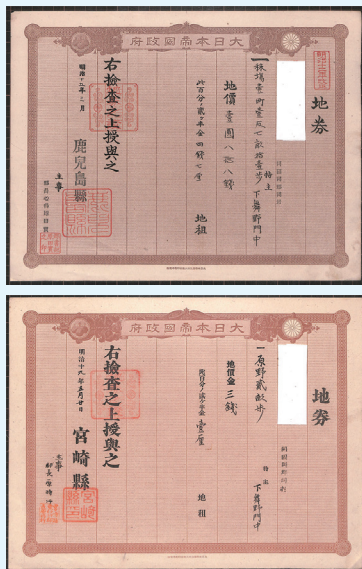 大日本帝國政府
地券
一秣場壹町壹反七畝拾壹歩
持主
下舞野門中
地價壹圓八拾八錢
此百分ノ貳ヶ半金四錢七厘
地租
右檢査之上授與之
鹿兒島縣
主事
大日本帝國政府
地券
一原野貳畝歩
持主
下舞野門中
地價金三錢
此百分ノ貳ヶ半金壹厘
地租
右檢査之上授與之
明治十九年五月廿日
宮崎縣
主事